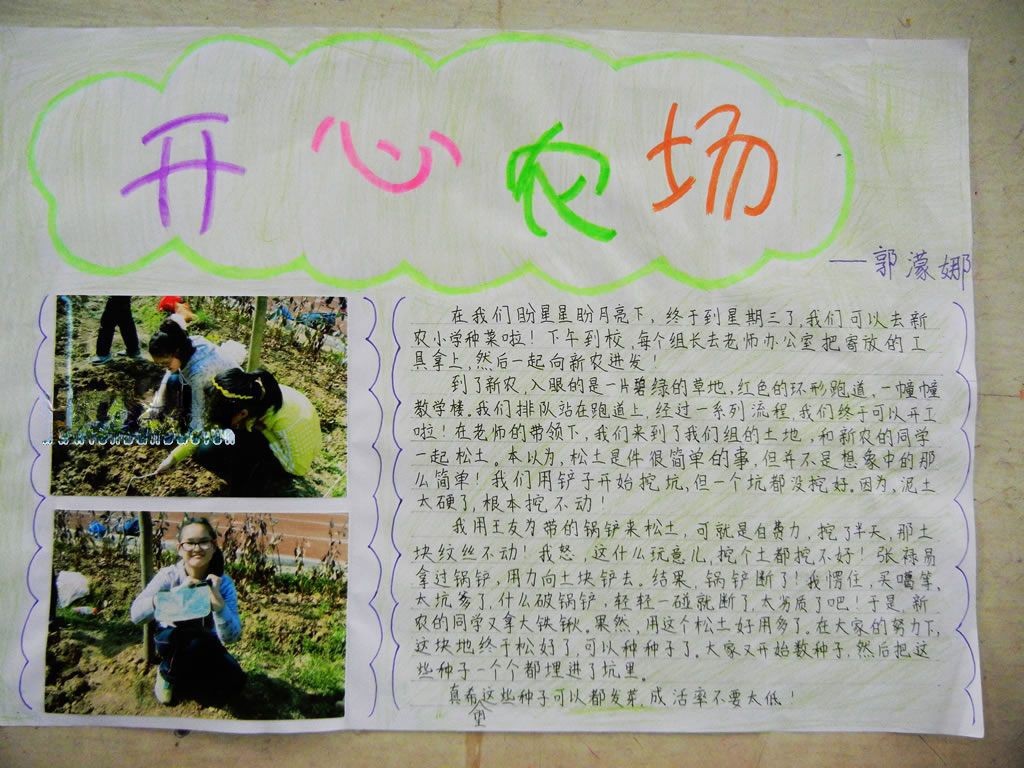 开心农场
——郭濛娜
在我们盼星星盼月亮下，终于到星期三了，我们可以去新
农小学种菜啦！下午到校，每个组长去老师办公室把寄放的工
具拿上，然后一起向新农进发！
到了新农，入眼的是一片碧绿的草地，红色的环形跑道，一幢幢
教学楼。我们排队站在跑道上，经过一系列流程，我们终于可以开工
啦！在老师的带领下，我们来到了我们组的土地，和新农的同学
一起松土。本以为，松土是件很简单的事，但并不是想象中的那
么简单！我们用铲子开始挖坑，但一个坑都没挖好。因为，泥土
太硬了，根本挖不动！
我用王友为带的锅铲来松土，可就是白费力，挖了半天，那土
块纹丝不动！我怒，这什么玩意儿，挖个土都挖不好！张禄易
拿过锅铲，用力向土块铲去。结果，锅铲断了！我愣住，
太坑爹了，什么破锅铲，轻轻一碰就断了，太劣质了吧！于是，新
农的同学又拿大铁锹。果然，用这个松土好用多了。在大家的努力下，
这块地终于松好了，可以种种子了。大家又开始数种子，然后把这
些种子一个个都埋进了坑里。
真希望这些种子可以都发菜，成活率不要太低！